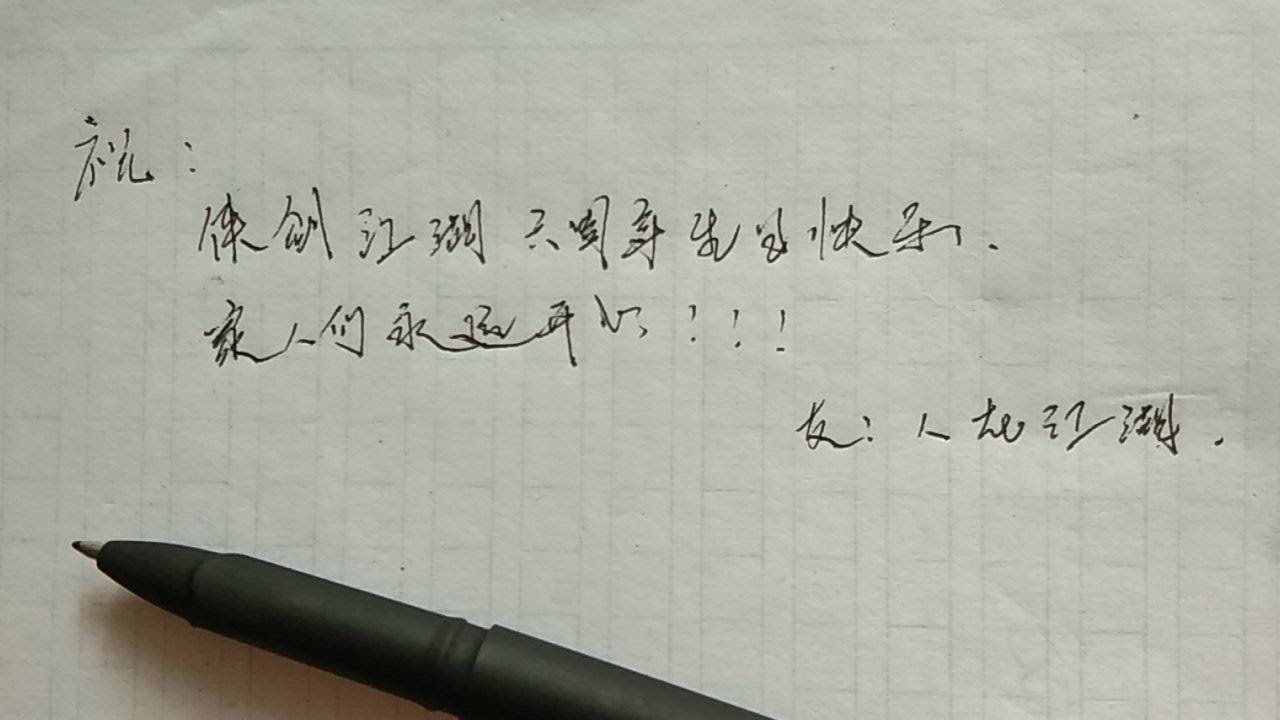 祝：
侠剑江湖六周年生日快乐.
家人们永远开心！！！
友：人在江湖.